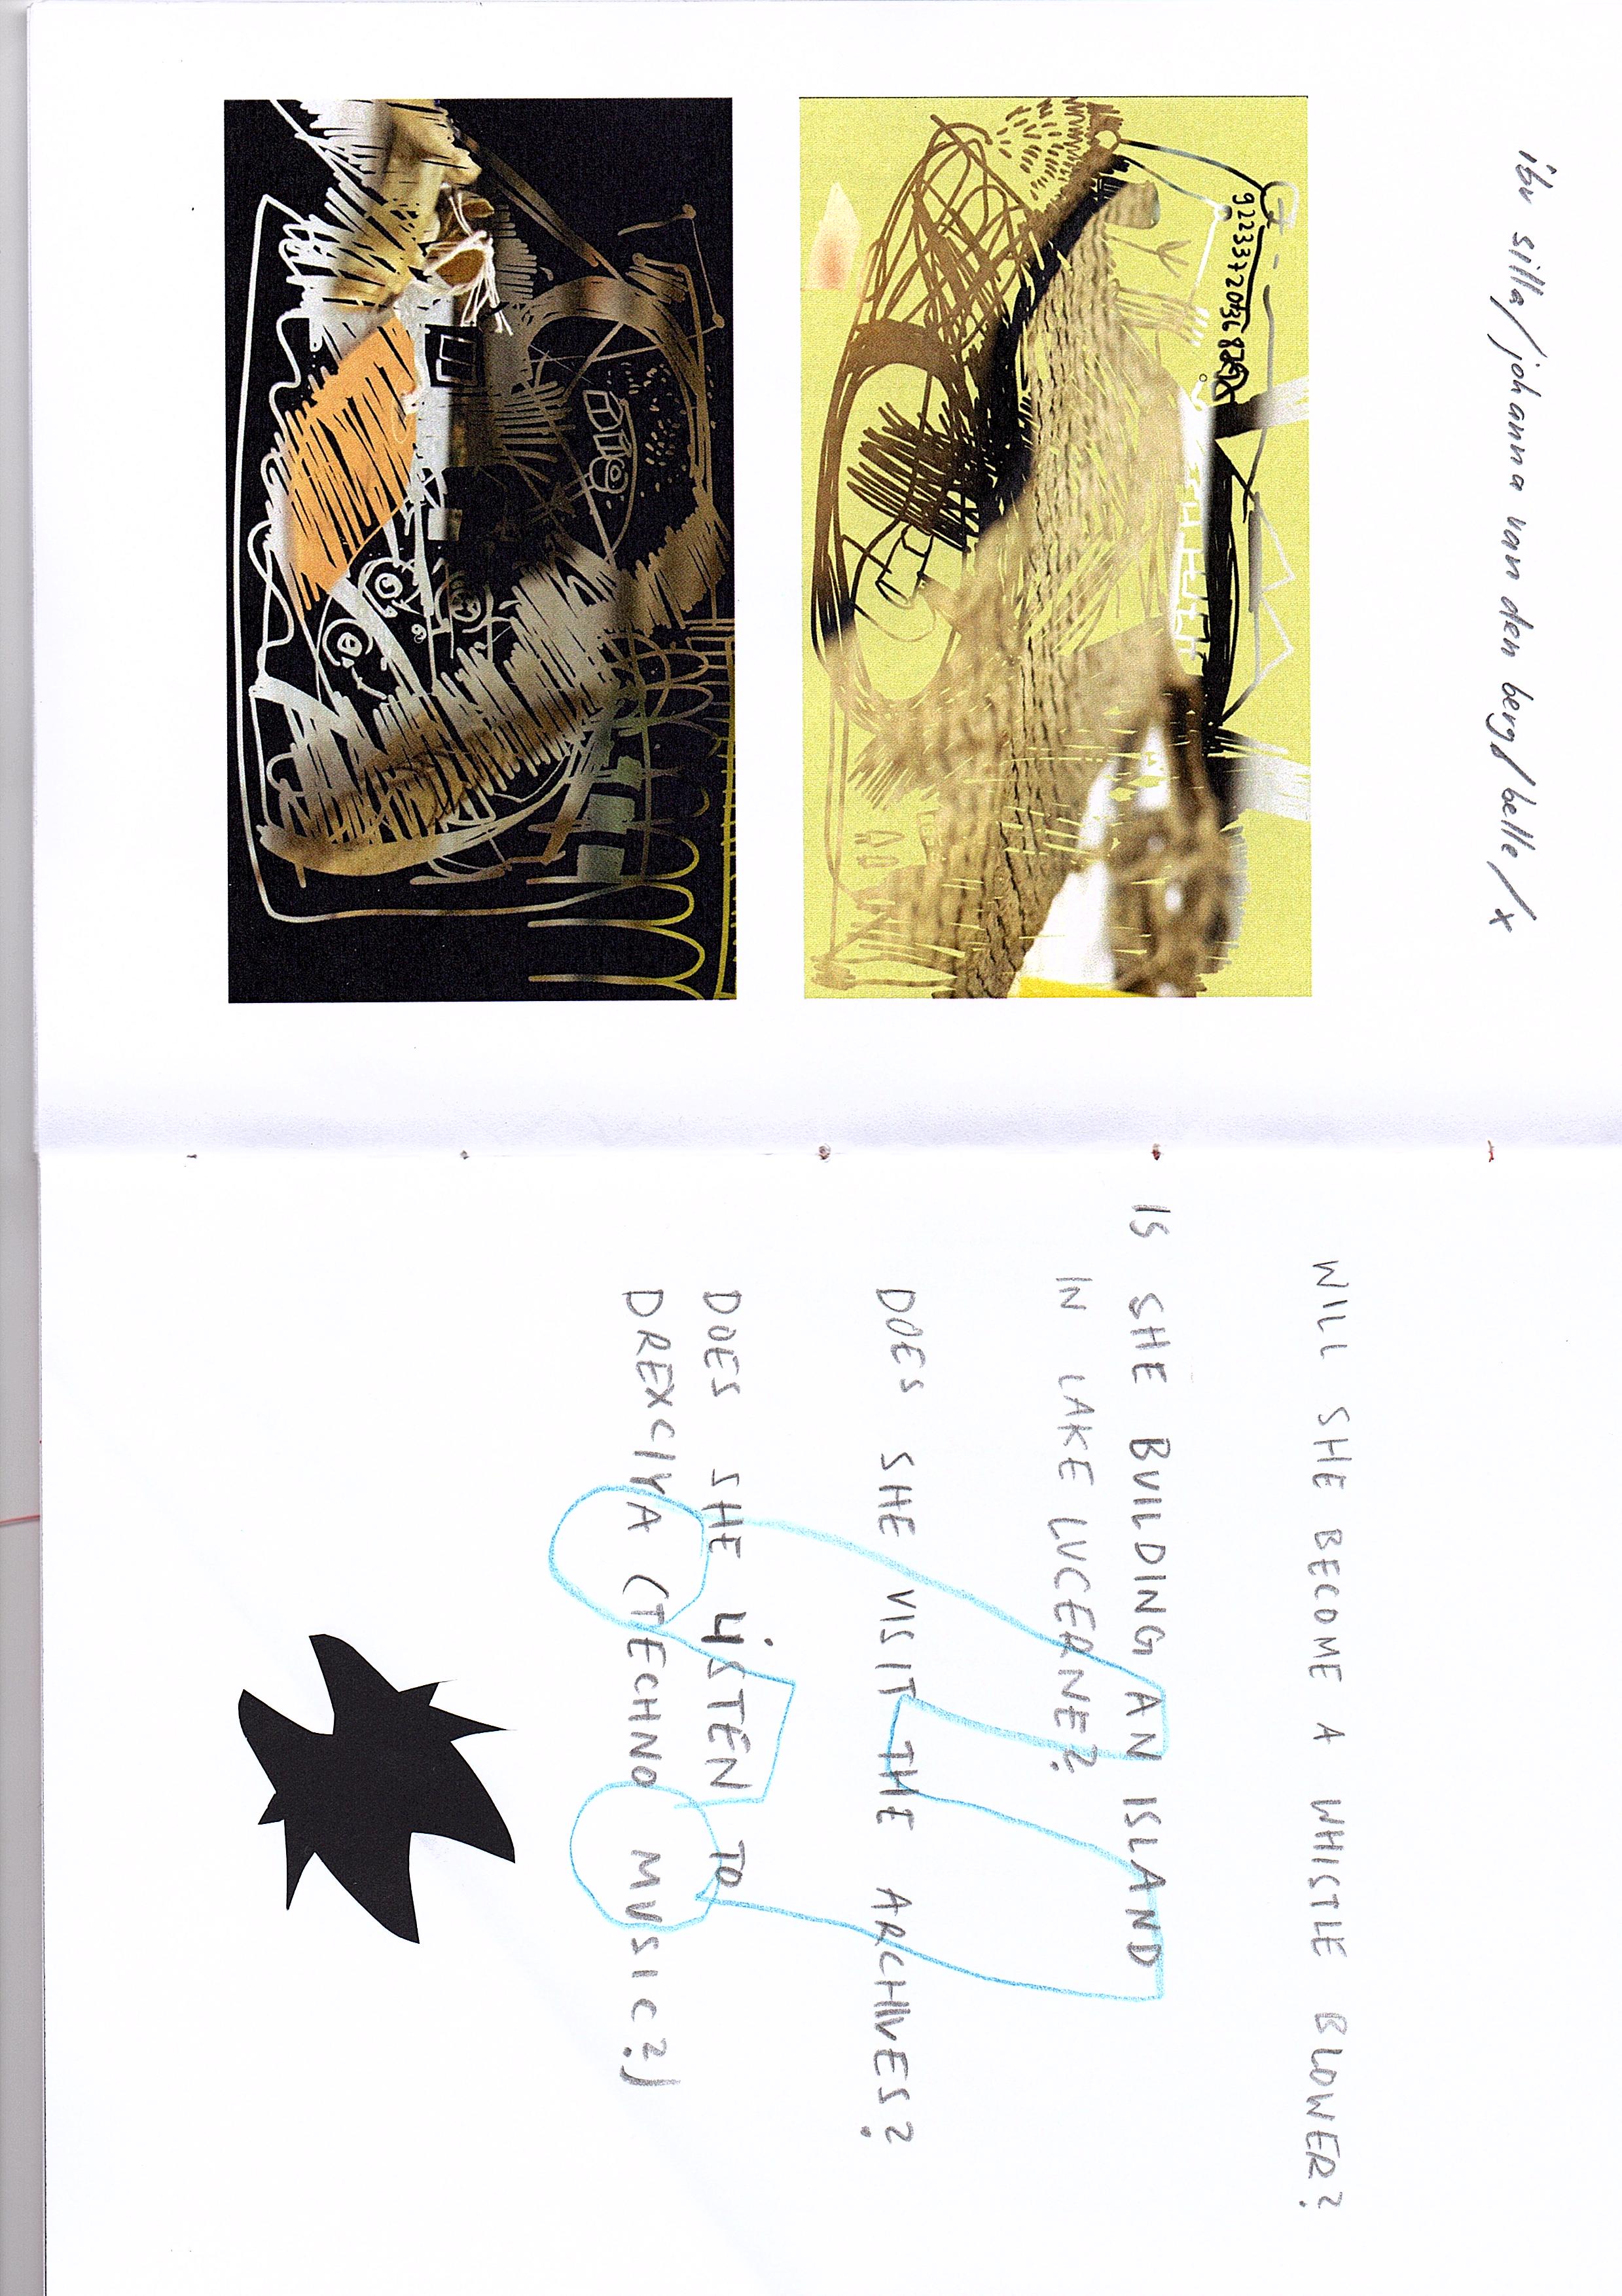 ibu silla/johanna van den berg/belle/x
WILL SHE BECOME A WHISTLE BLOWER?
IS SHE BUILDING AN ISLAND
IN LAKE LUCERNE?
DOES SHE VISIT THE ARCHIVES?
DOES SHE LiSTEN TO
DREXCIYA (TECHNO MUSIC?)